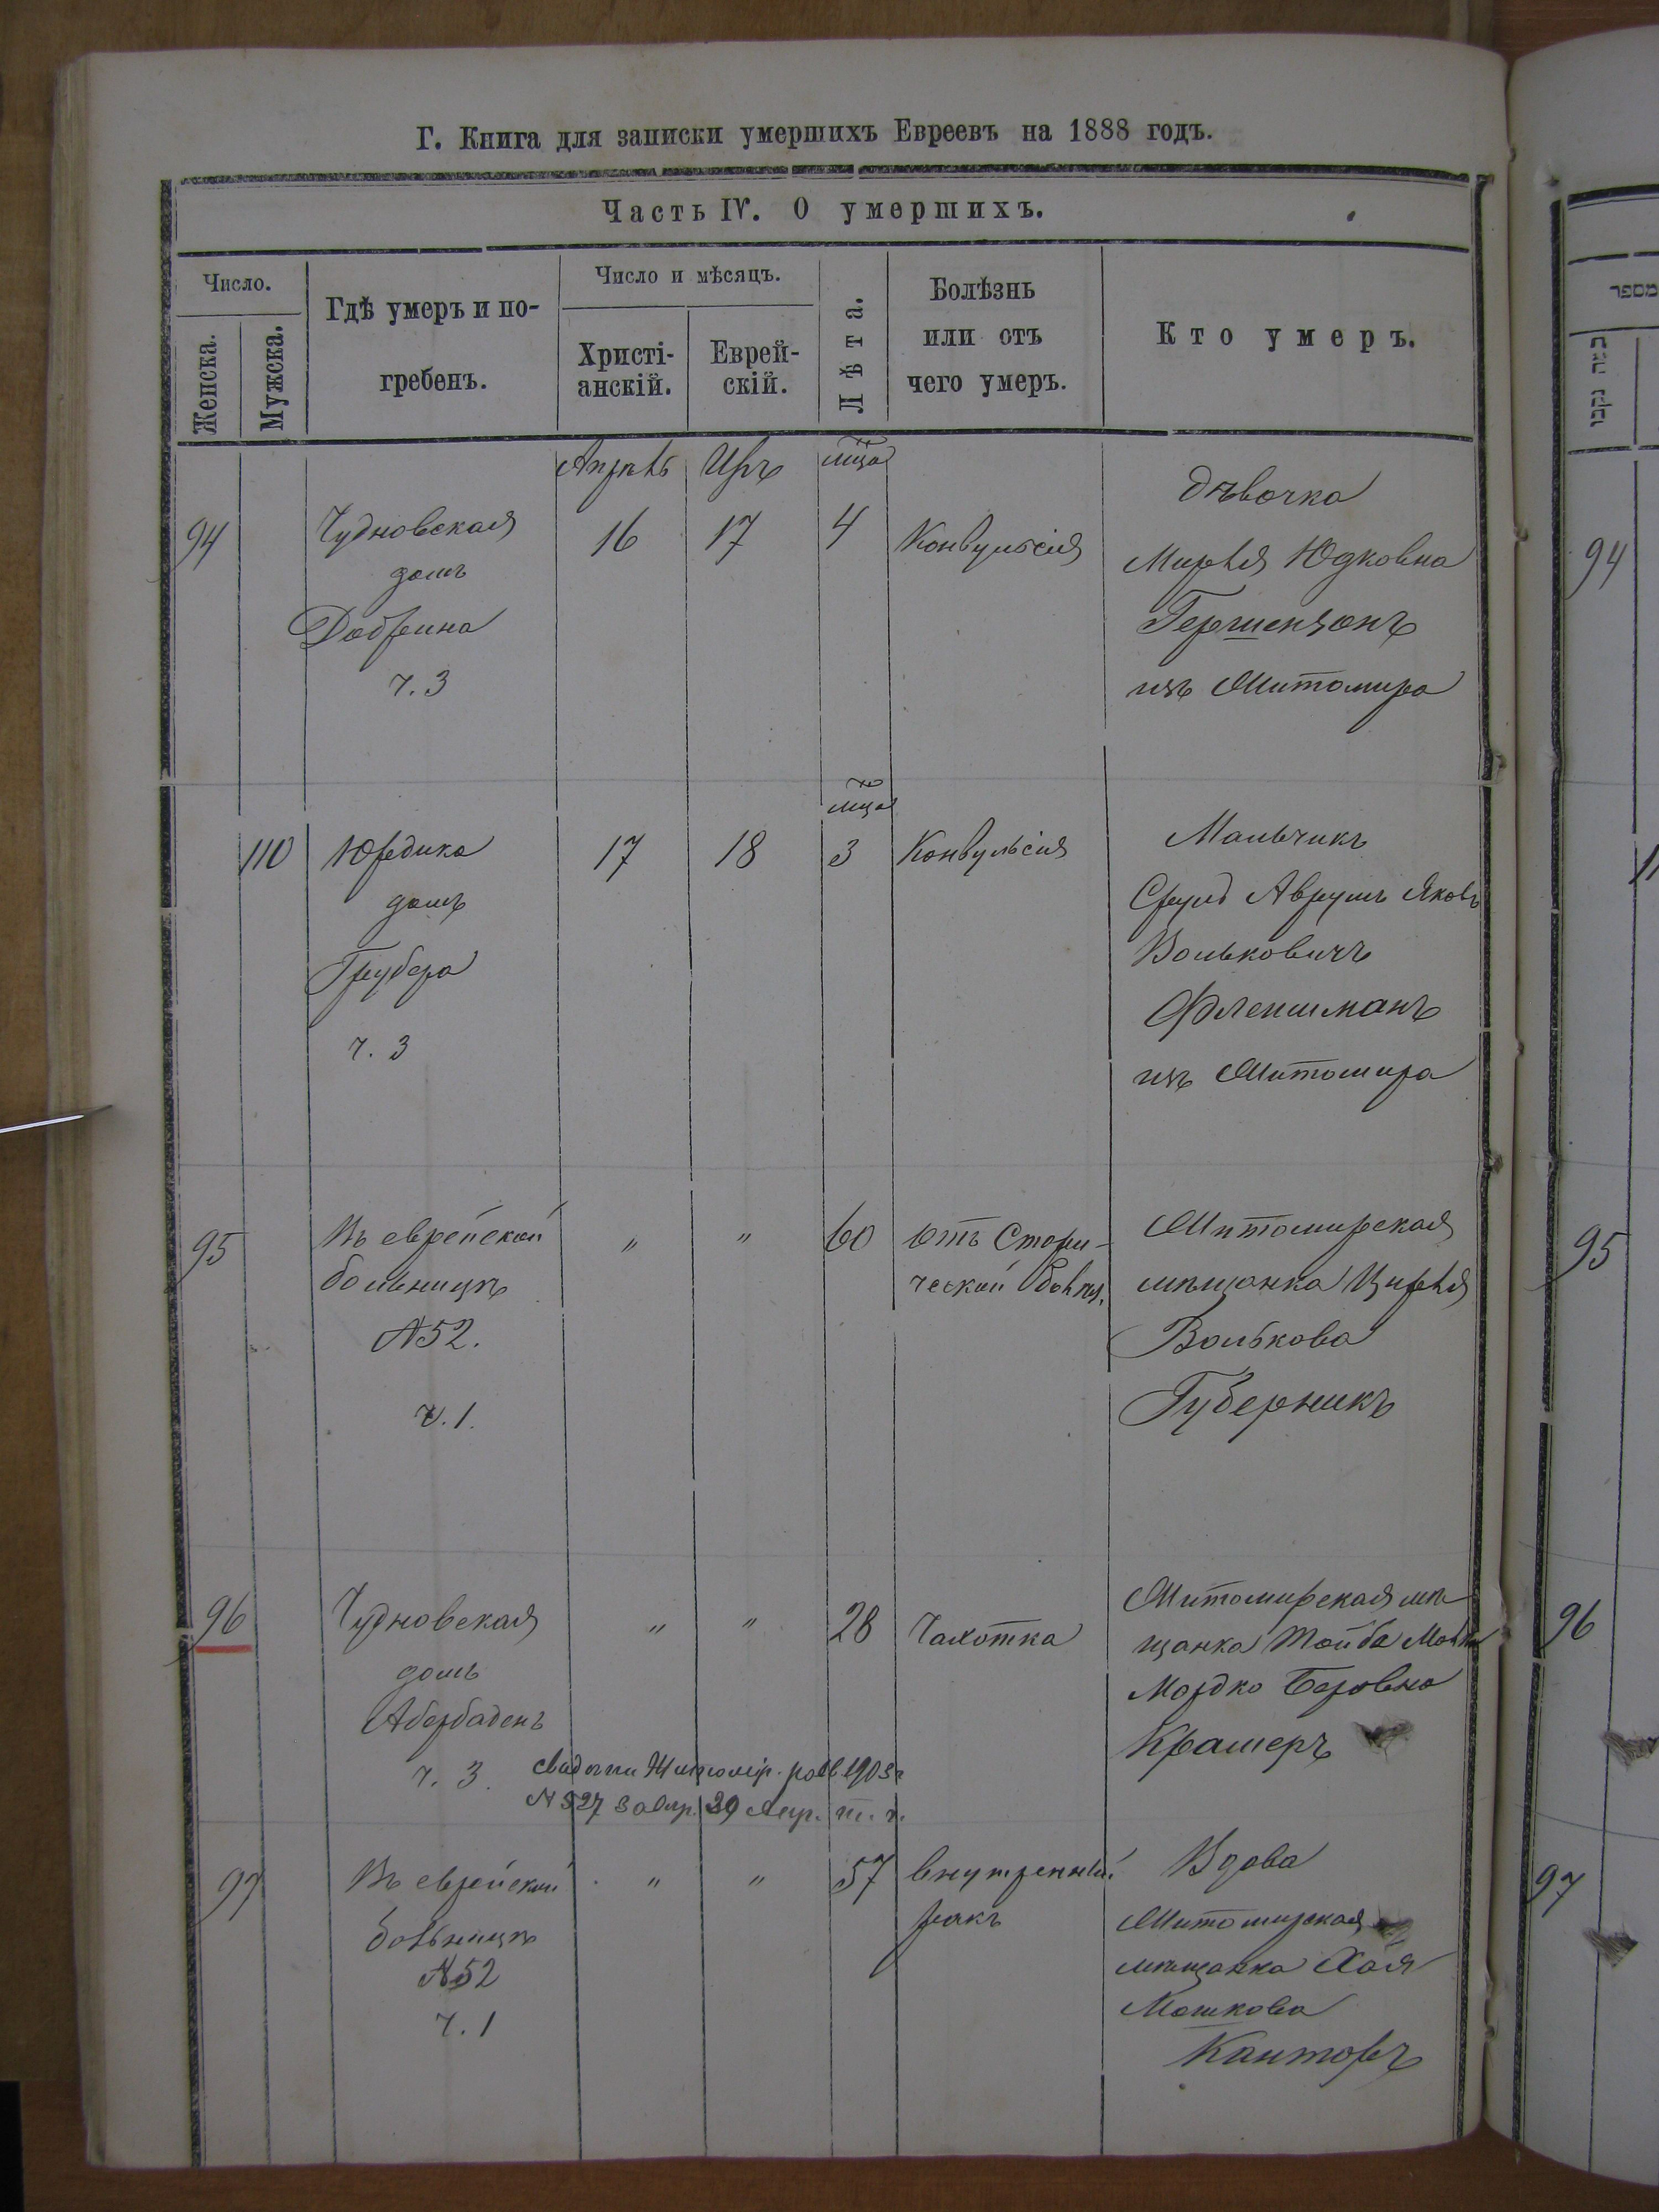 Г. Книга для записки умершихъ Евреевъ на 1888 годъ.
Часть IV. О умершихъ.
Число.
Женска.
Мужска.
Гдѣ умеръ и по-
гребенъ.
Число и мѣсяцъ.
Христі-
анскій.
Еврей-
скій.
Лѣта.
Болѣзнь
или отъ
чего умеръ.
Кто умеръ.
Апрѣль Иръ мца
94
Чудновская
домъ
Добрина
ч. 3
16
17
4
Конвульсія
Дѣвочка
Мирля Юдковна
Гершензонъ
изъ Житомира
мца
110
Юридика
домъ
Грубера
ч. 3
17
18
3
Конвульсія
Мальчикъ
Срулъ Аврумъ Яковъ
Вольковичъ
Флейшманъ
изъ Житомира
95
Въ еврейской
больницѣ
№52.
ч. 1.
"
"
60
отъ Стари-
ческой
Житомирская
мѣщанка Цирля
Волькова
Губерникъ
96
Чудновская
домъ
ч. 3.
"
"
28
Чахотка
Житомирская мѣ-
щанка Тойба
Мордко Беровна
Крамеръ
Житомір. 1903г
№527 29 Апр. т. г.
97
Въ еврейской
больницѣ
№52
ч. 1
"
"
57
внутренній
ракъ
Вдова
Житомирская
мѣщанка Хая
Мошкова
Канторъ
מספר
94
11
95
96
97